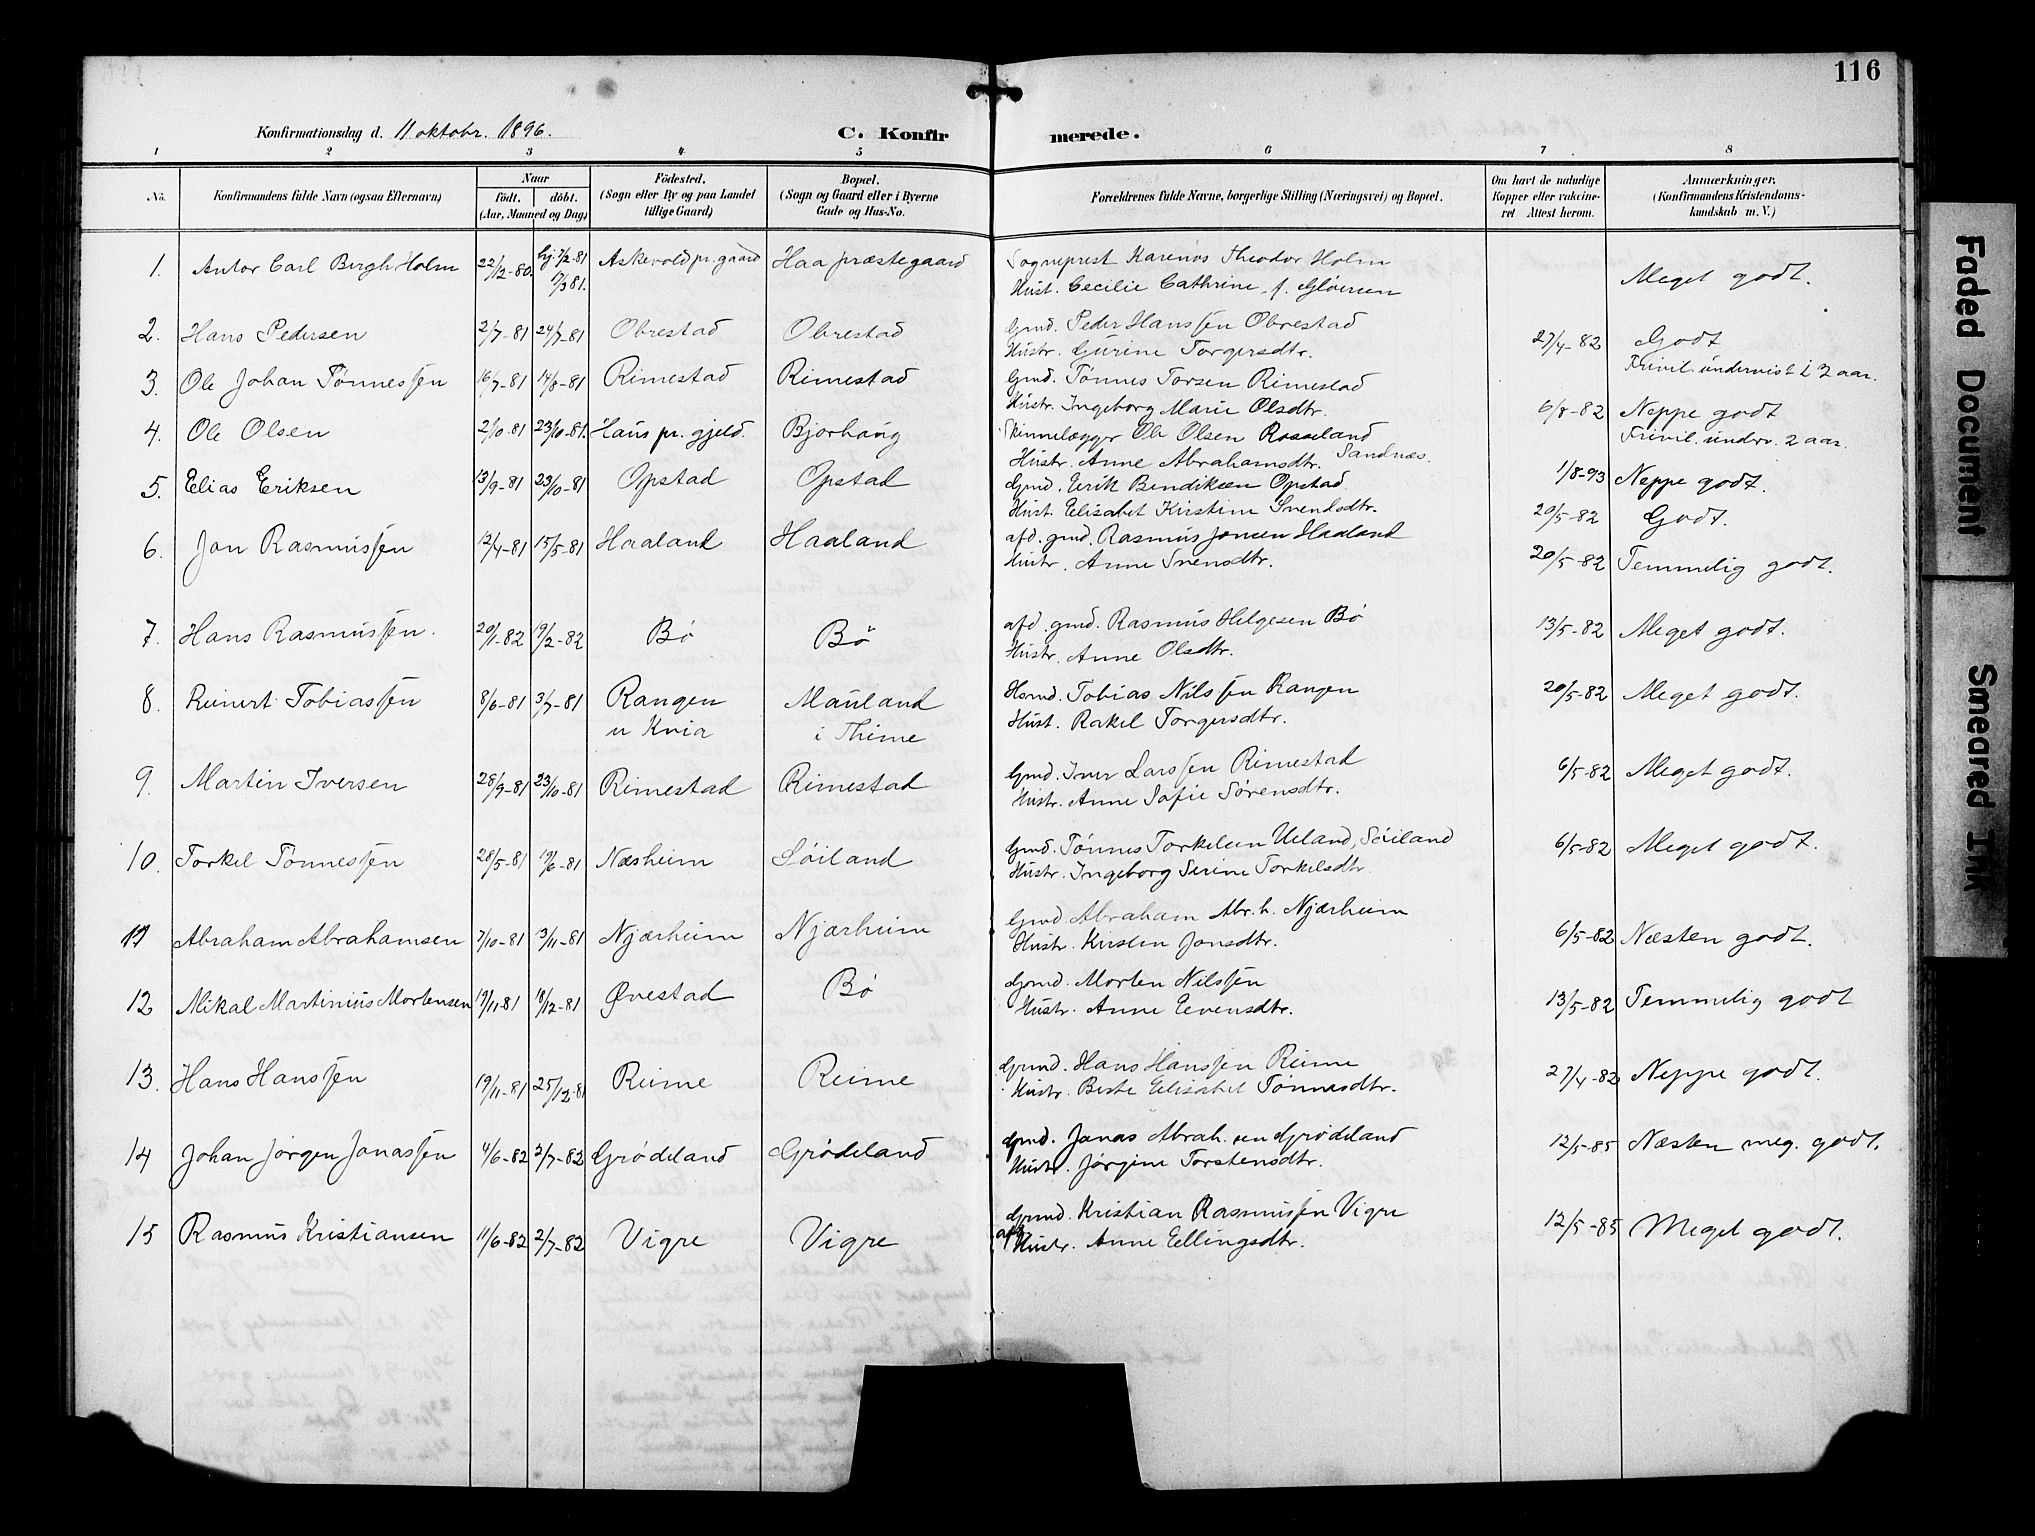 116
Konfirmationsdag d. 11 oktobr. 1896.
C. Konfirmerede.
1 2 3 4 5 6 7 8
No. Konfirmandens fulde Navn (ogsaa Efternavn) Naar født. døbt. (Aar, Maaned og Dag) Födested. (Sogn eller By og paa Landet tillige Gaard) Bopæl. (Sogn og Gaard eller i Byerne Gade og Hus-No. Forældrenes fulde Navne, borgerlige Stilling (Næringsvei) og Bopæl. Om havt de naturlige Kopper eller vakcineret Attest herom. Anmærkninger. (Konfirmandens Kristendomskundskab m. V.)
1. Anton Carl Bergh Holm 22/12-80. hj. 7/2-81 17/3 81. Askevold pr. gaard Haa præstegaard Sogneprest Karenus Theodor Holm
Hust. Cecilie Cathrine f. Gløersen Meget godt.
2. Hans Pedersen 2/7-81 24/7-81 Obrestad Obrestad Gmd. Peder Hanssen Obrestad
Hustr. Gurine Torgersdtr. 27/4-82 Godt
Frivil. undervist i 2 aar.
3. Ole Johan Tønnessen 16/7-81 14/8-81 Rimestad Rimestad Gmd. Tønnes Torsen Rimestad
Hustr. Ingeborg Marie Olsdtr. 6/8-82 Neppe godt
Frivil. underv. 2 aar.
4. Ole Olsen 2/10 81 23/10-81. Haus pr. gjeld. Bjorhaug Ole Olsen Rosseland
Hustr. Anne Abrahamsdtr. Sandnæs. 1/8-93 Neppe godt.
5. Elias Eriksen 13/9-81 23/10-81 Opstad Opstad Gmd. Erik Bendiksen Opstad
Hust. Elisabet Kirstine Svendsdtr. 20/5-82 Godt.
6. Jon Rasmussen 12/4-81 15/5-81 Haaland Haaland afd. gmd. Rasmus Jonsen Haaland
Hustr. Anne Svensdtr. 20/5-82 Temmelig godt.
7. Hans Rasmussen. 20/1-82 19/2-82 Bø Bø afd. gmd. Rasmus Helgesen Bø
Hustr. Anne Olsdtr. 13/5-82 Meget godt.
8. Reinert Tobiassen 8/6-81 3/7-81 Rangen
u Kvia Mauland
i Thime Hsmd. Tobias Nilssen Rangen
Hust. Rakel Torgersdtr. 20/5-82 Meget godt.
9. Martin Iversen 28/9-81 23/10-81 Rimestad Rimestad Gmd. Iver Larssen Rimestad
Hustr. Anne Sofie Sørensdtr. 6/5-82 Meget godt.
10. Torkel Tønnessen 28/5-81 19/6-81 Næsheim Søiland Gmd. Tønnes Torkelsen Ueland, Søiland
Hustr. Ingeborg Serine Torkelsdtr. 6/5-82 Meget godt.
11 Abraham Abrahamsen 7/10-81 13/11-81 Njærheim Njærheim Gmd. Abraham Abr.h. Njærheim
Hustr. Kirsten Jonsdtr. 6/5-82 Næsten godt.
12 Mikal Martinius Mortensen 19/11-81 18/12-81 Øvestad Bø Gmd. Morten Nilssen
Hustr. Anne Evensdtr. 13/5-82 Temmelig godt
13. Hans Hanssen 19/11-81 25/12-81 Reime Reime Grmd. Hans Hanssen Reime
Hustr. Berte Elisabet Tønnesdtr. 27/4-82 Neppe godt.
14 Johan Jørgen Jonassen 4/6-82 2/7-82 Grødeland Grødeland Gmd. Jonas Abrah.sen Grødeland
Hustr. Jørgine Torstensdtr. 12/5-85 Næsten meg. godt.
15 Rasmus Kristiansen 11/6-82 2/7-82 Vigre Vigre Grmd. Kristian Rasmussen Vigre
afd. Hustr. Anne Ellingsdtr. 12/5-85 Meget godt.
Faded Document
Smeared Ink